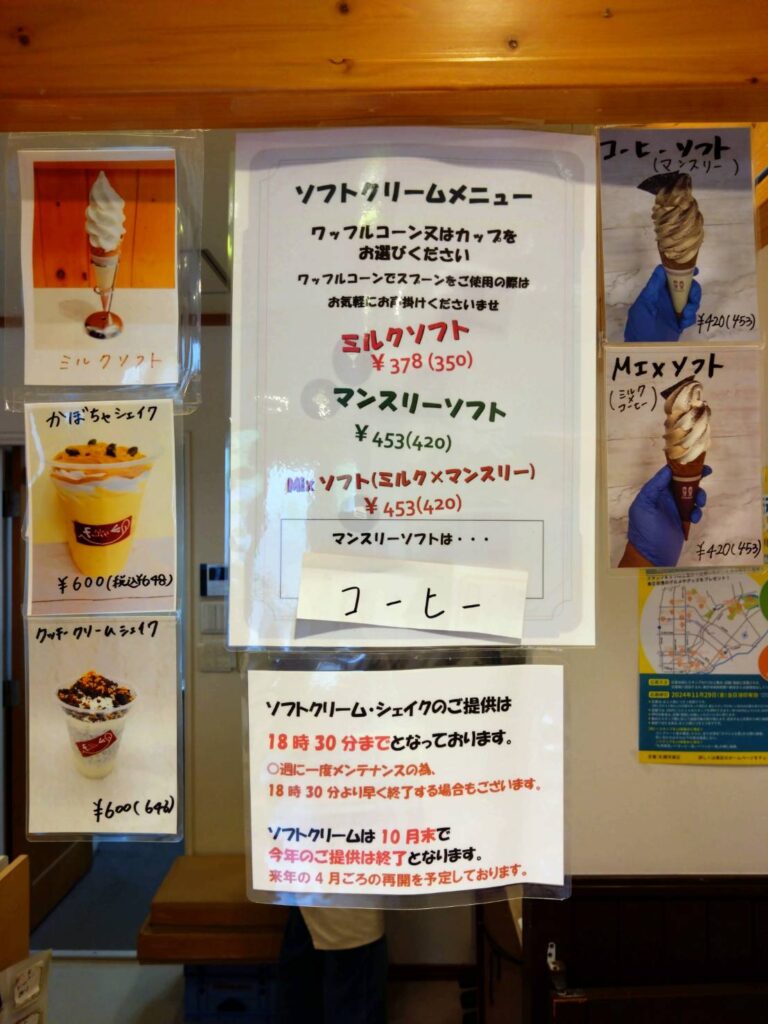 ミルクソフト
かぼちゃシェイク
¥600(税込¥648)
クッキークリームシェイク
¥600(648)
ソフトクリームメニュー
ワッフルコーン又はカップを
お選びください
ワッフルコーンでスプーンをご使用の際は
お気軽にお声掛けくださいませ
ミルクソフト
¥378(350)
マンスリーソフト
¥453(420)
Mix ソフト(ミルク×マンスリー)
¥453(420)
マンスリーソフトは・・・
コーヒー
ソフトクリーム・シェイクのご提供は
18時30分までとなっております。
○週に一度メンテナンスの為、
18時30分より早く終了する場合もございます。
ソフトクリームは10月末で
今年のご提供は終了となります。
来年の4月ごろの再開を予定しております。
コーヒーソフト
(マンスリー)
¥420(453)
MIxソフト
(ミルク
×
コーヒー)
¥420(453)
2024年11月29日